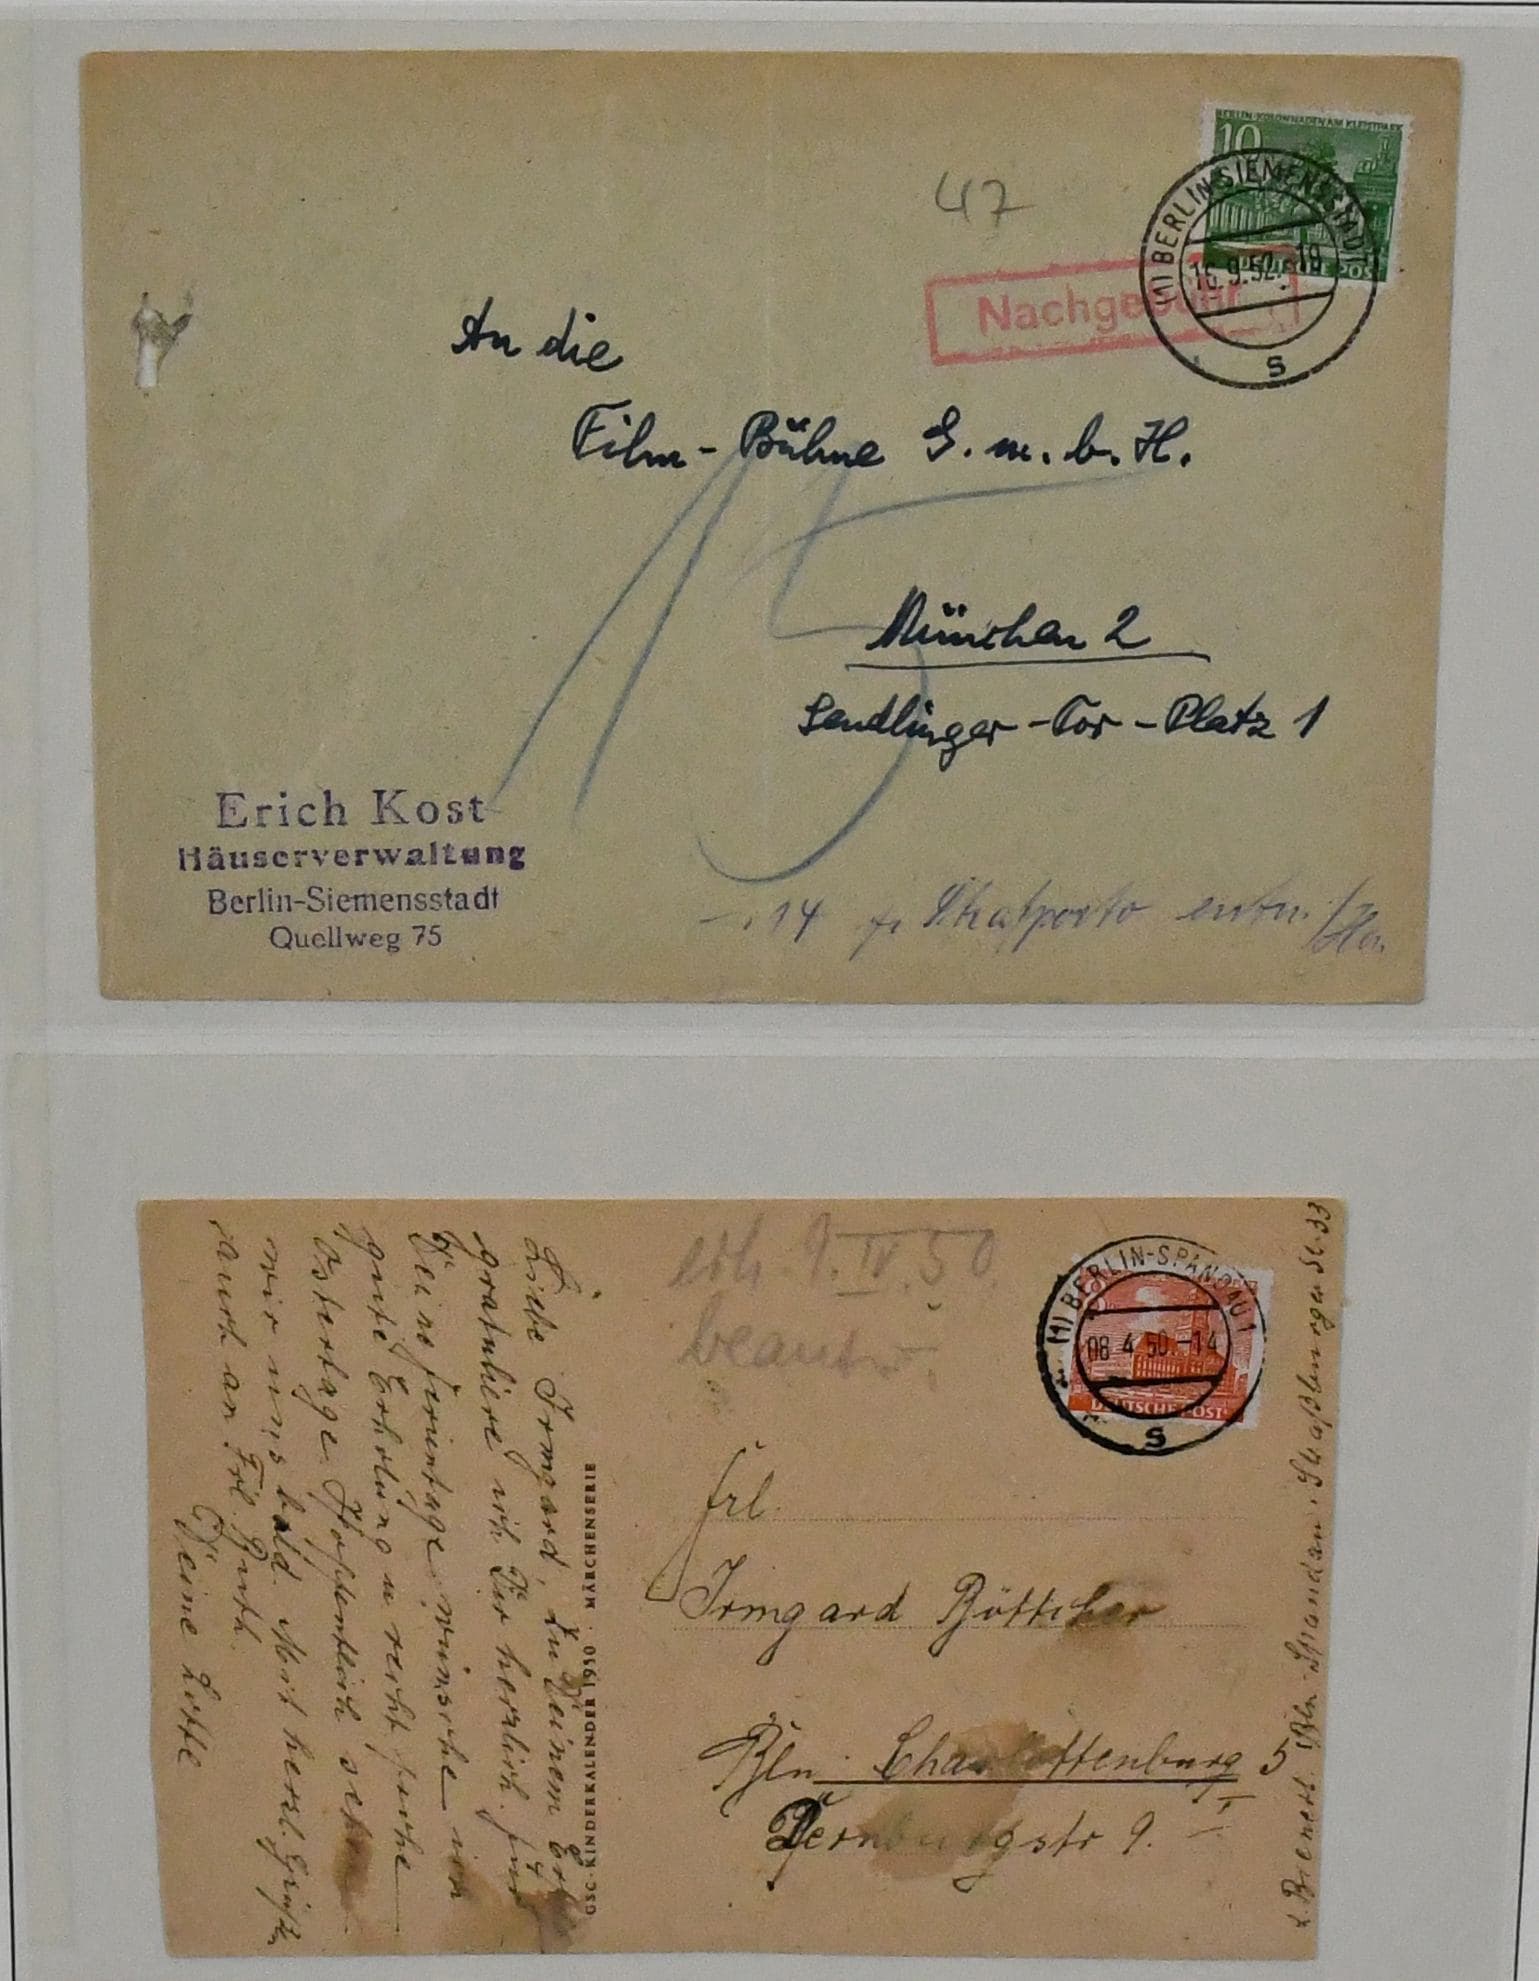 BERLIN-KOLONNADEN AM KLEISTPARK
10
DEUTSCHE POST
(1) BERLIN-SIEMENSSTADT 1
16.9.52.-18
s
47
Nachgebühr
An die
Film-Bühne G.m.b.H.
München 2
Sendlinger-Tor-Platz 1
15
Erich Kost
Häuserverwaltung
Berlin-Siemensstadt
Quellweg 75
-.14 f. Strafporto entn.
erh. 9.IV.50.
beantw.
(1) BERLIN-SPANDAU 1
08.4.50.-14
s
DEUTSCHE POST
Frl.
Irmgard Böttcher
Bln. Charlottenburg 5
Dernburgstr 9. I
Liebe Irmgard, zu Deinem
gratuliere ich Dir herzlich. Für
Deine Ferientage wünsche ich
gute Erholung u recht frohe
Ostertage. Hoffentlich sehen
wir uns bald. Mit herzl. Grüßen
auch an Frl. Ruth.
Deine Lotte
GSC-KINDERKALENDER 1950 · MÄRCHENSERIE
Bln.-Spandau, Straßburger St. 33